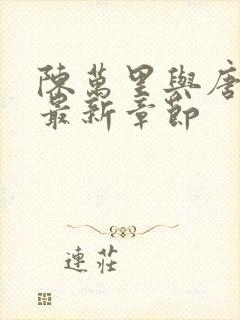 陳萬里與唐
最新章節
連莊